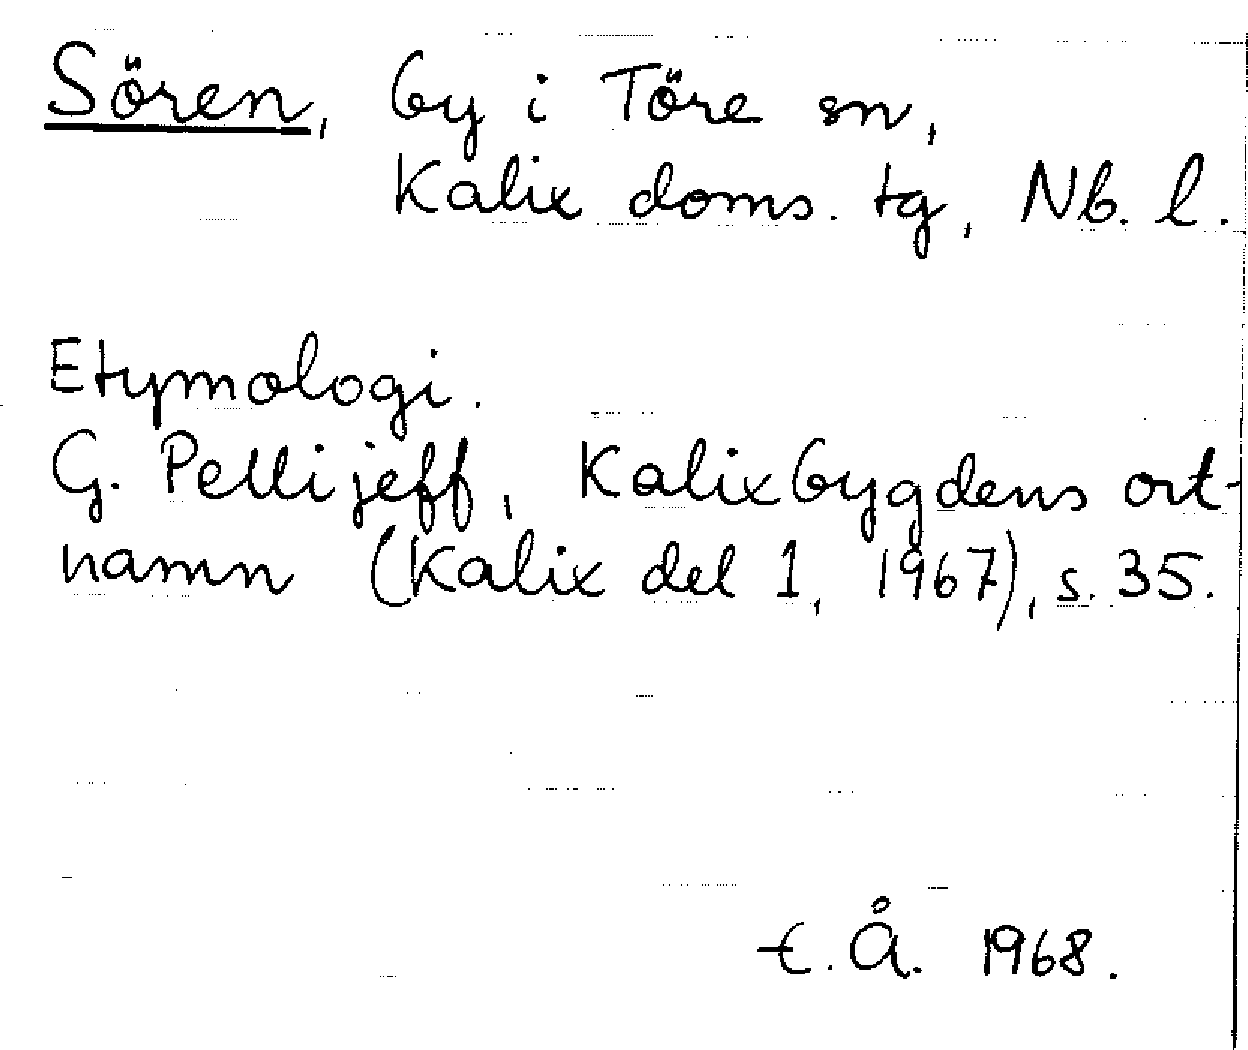 Sören, by i Töre sn,
Kalix doms. tg, Nb. l.
Etymologi.
G. Pellijeff, Kalixbygdens ort-
namn (Kalix del 1, 1967), s. 35.
t. Å. 1968.